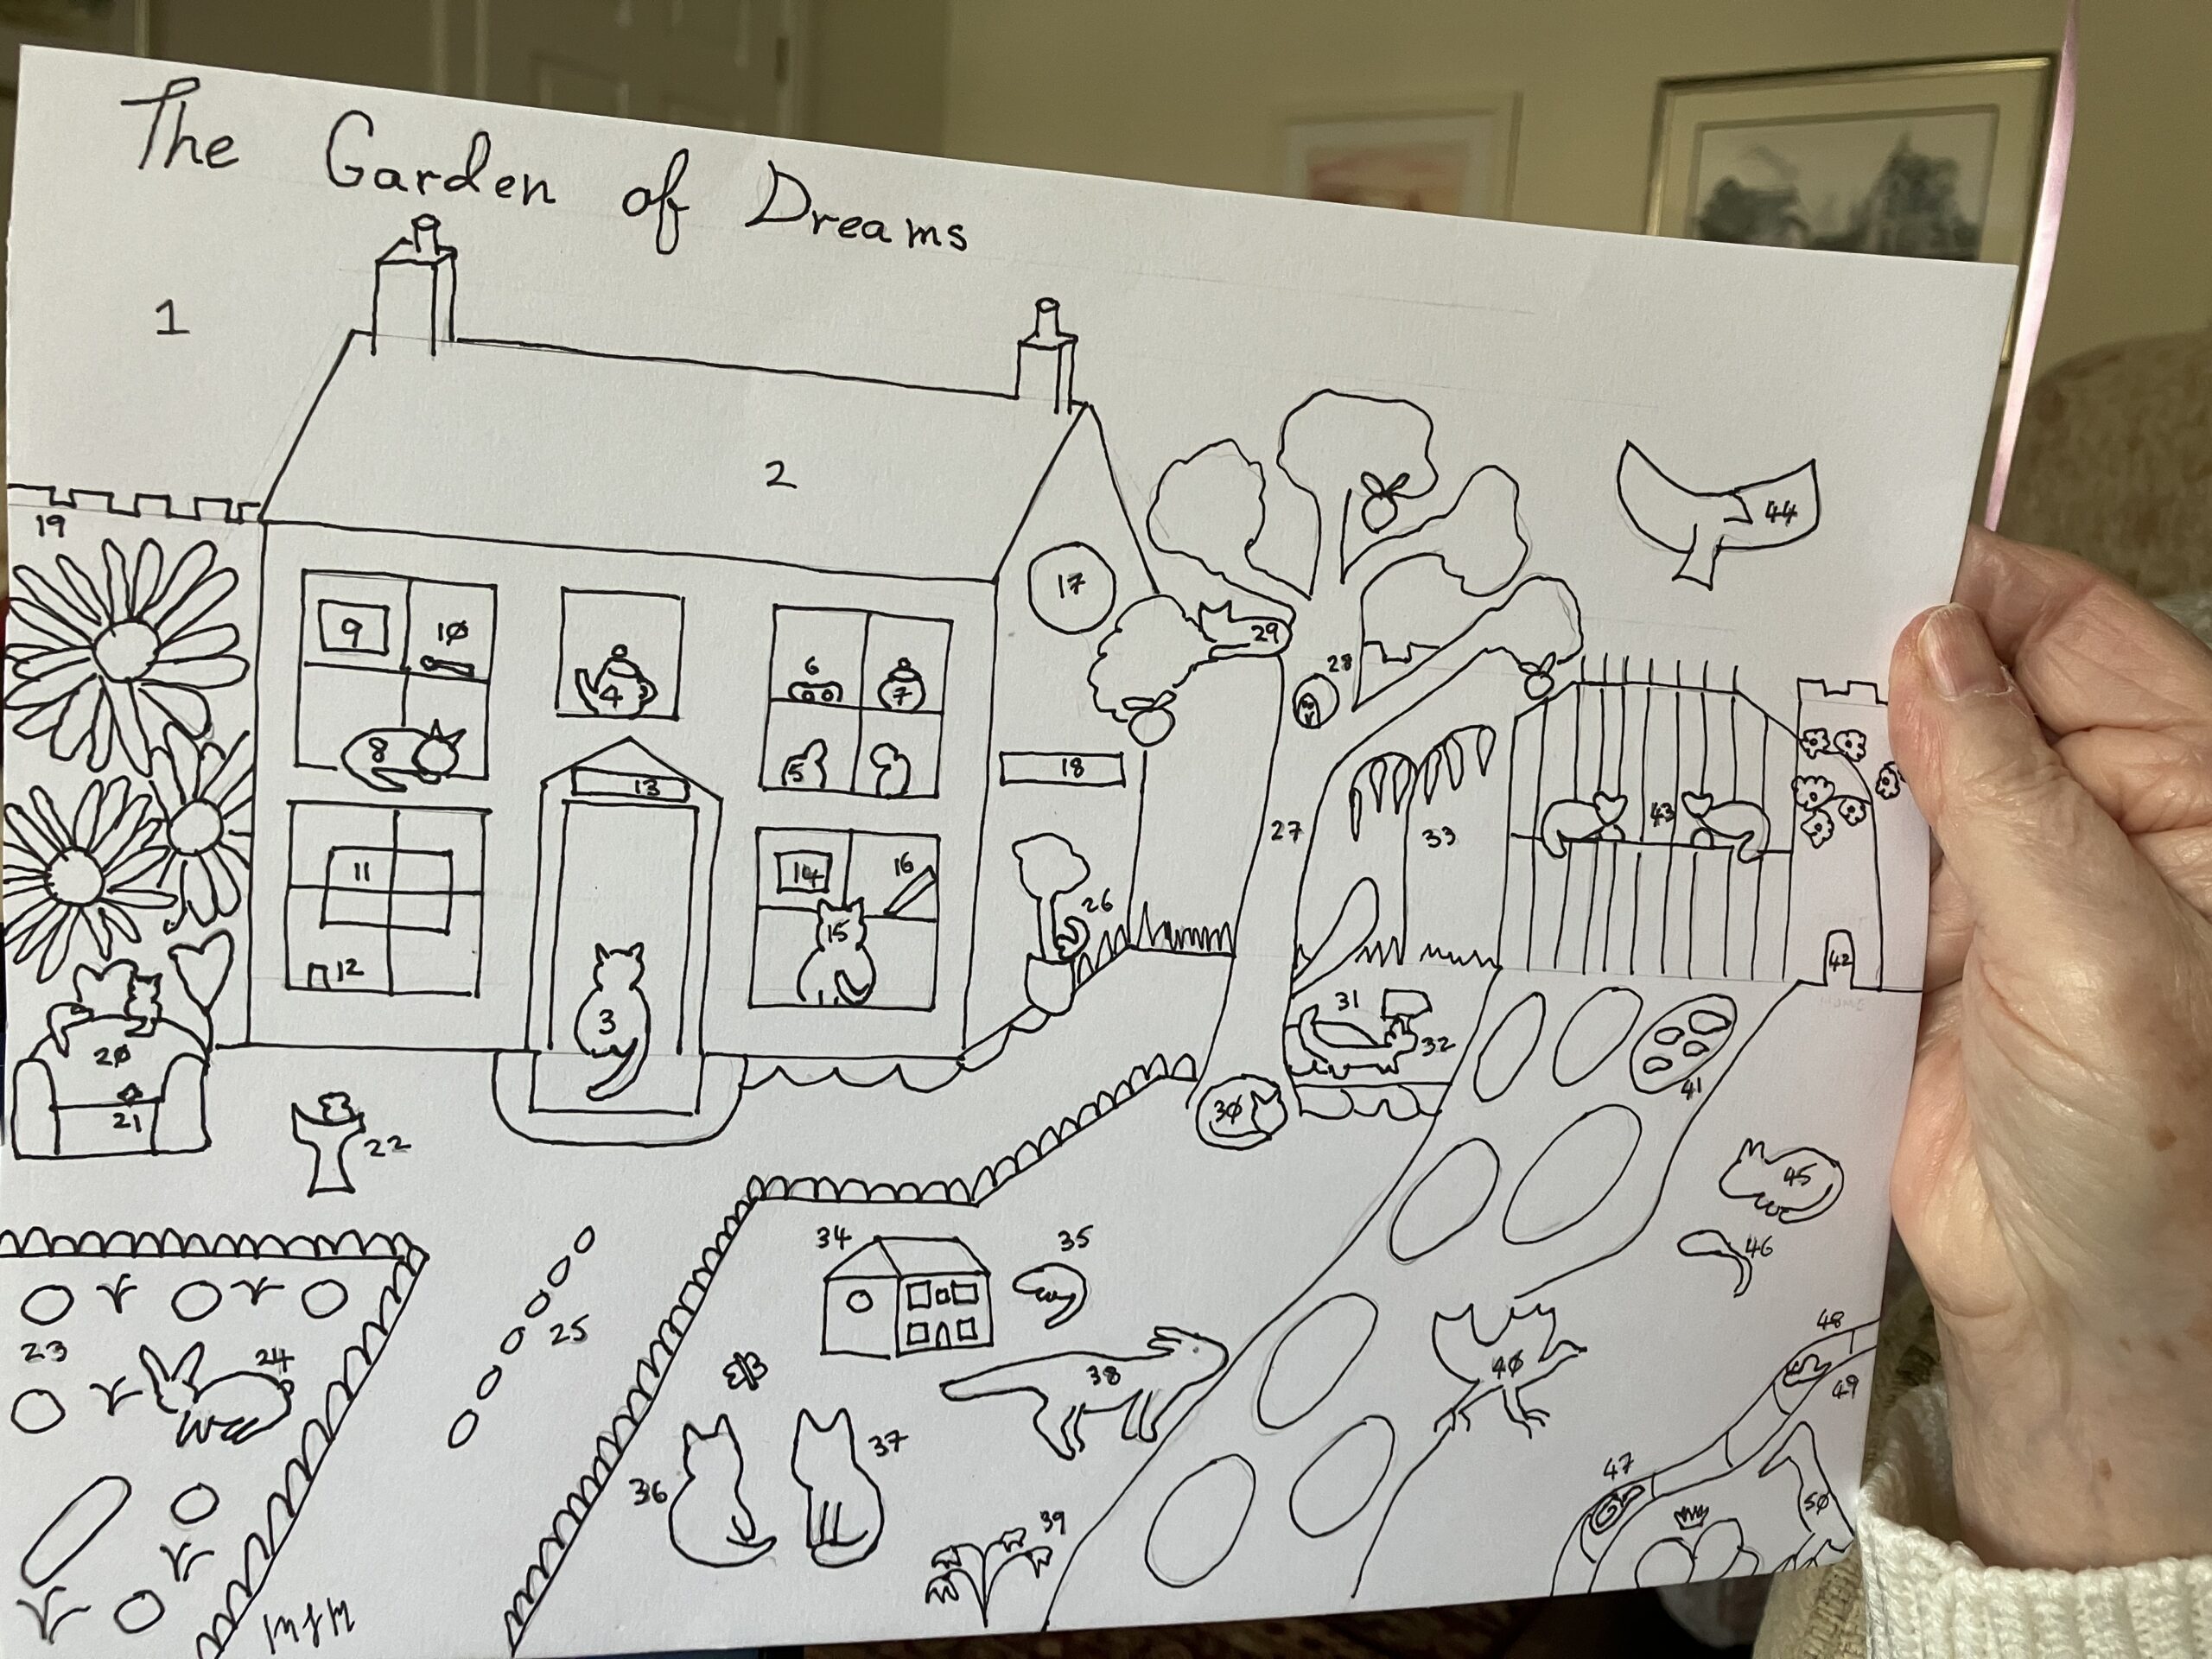 The Garden of Dreams
1
2
19
17
9
10
29
44
4
6
7
28
8
5
18
13
27
43
33
11
14
16
15
26
12
42
3
31
20
32
21
41
30
22
45
34
35
46
25
23
24
38
40
48
49
37
36
47
50
39
MJM